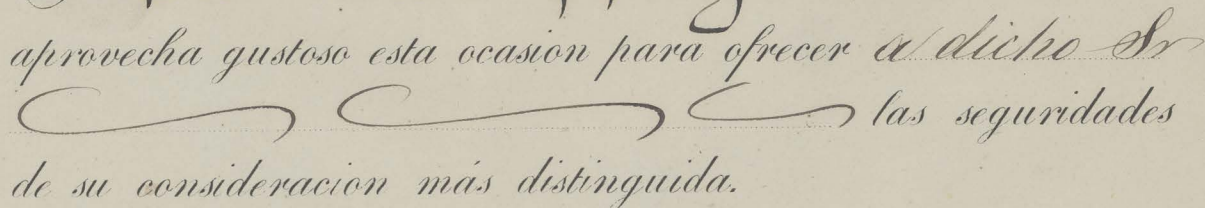 aprovecha gustoso esta ocasion para ofrecer a dicho Sr
las seguridades
de su consideracion más distinguida.